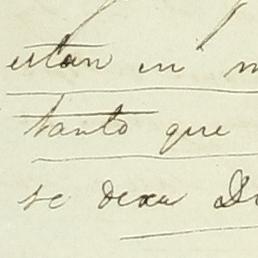 estan en
tanto que
se dexa